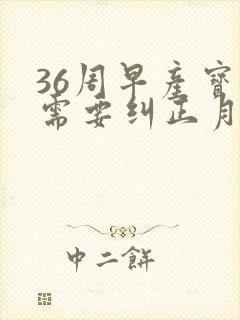 36周早产寶
需要纠正月
中二餅